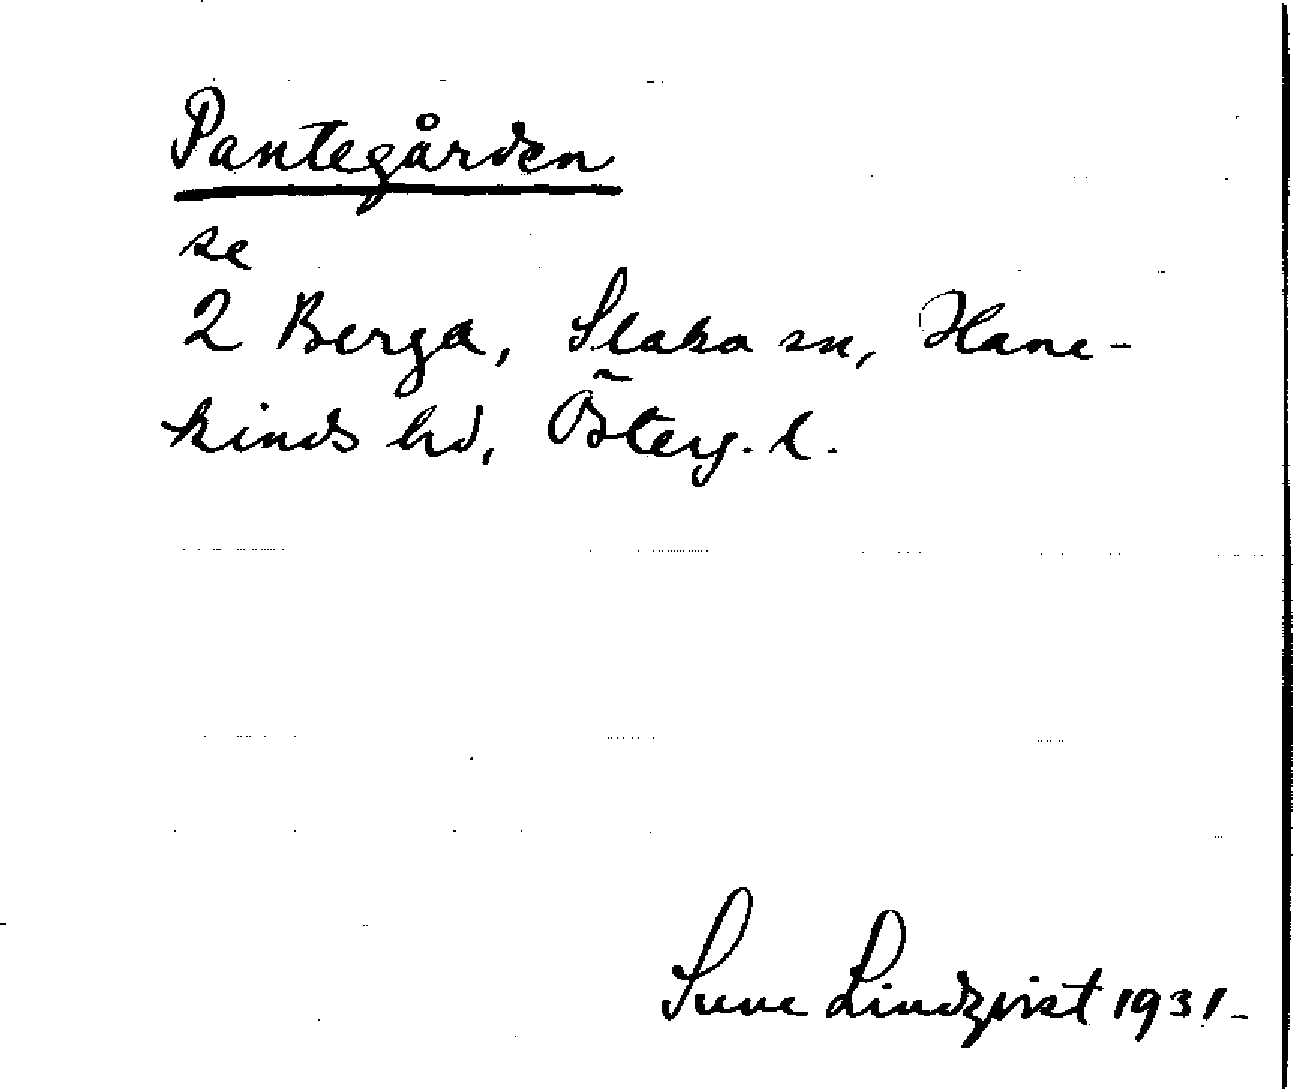 Pantegården
se
2 Berga, Slaka sn, Hane-
kinds hd, Österg. l.
Sune Lindqvist 1931.